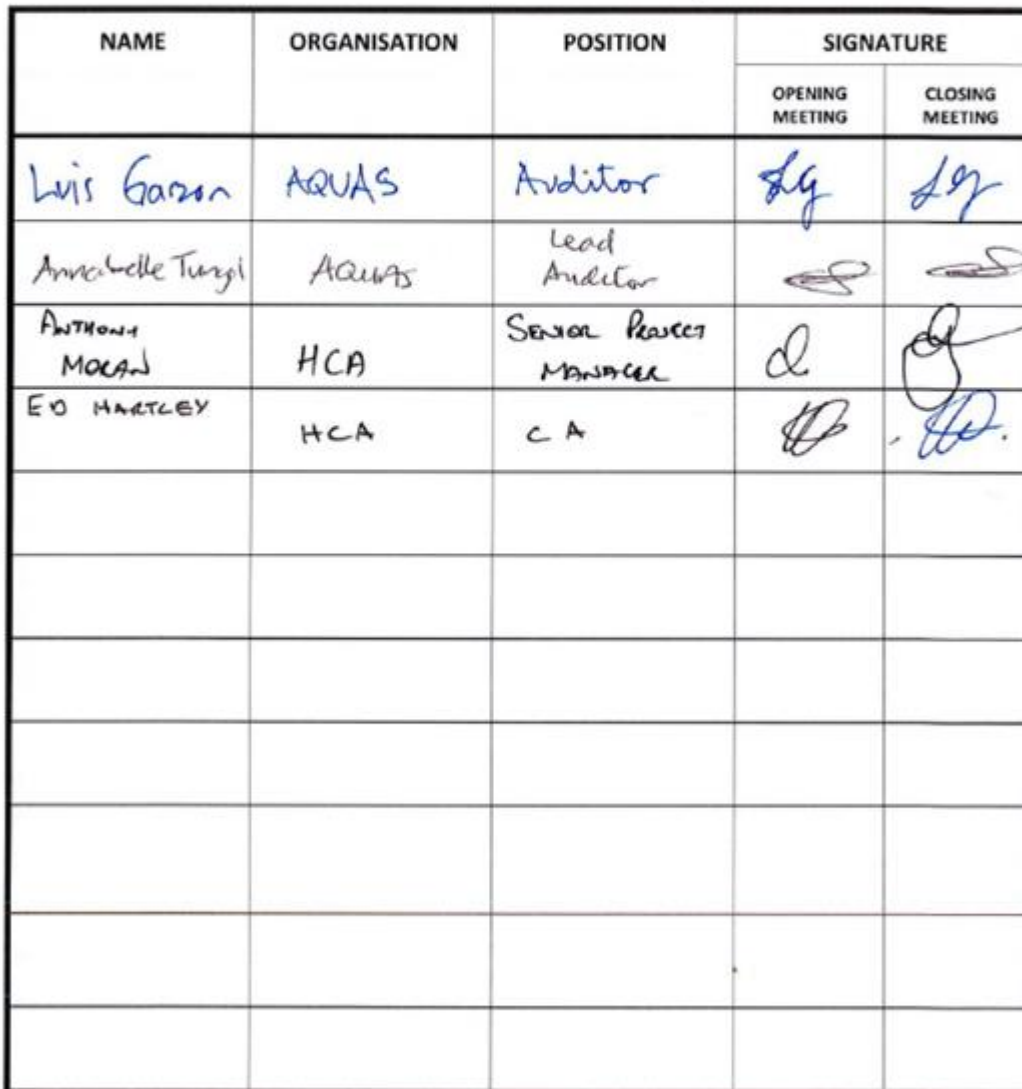 NAME ORGANISATION POSITION SIGNATURE
OPENING MEETING CLOSING MEETING
Luis Garzon AQUAS Auditor
Annabelle AQUAS Lead Auditor
ANTHONY MORAN HCA SENIOR PROJECT MANAGER
ED HARTLEY HCA CA